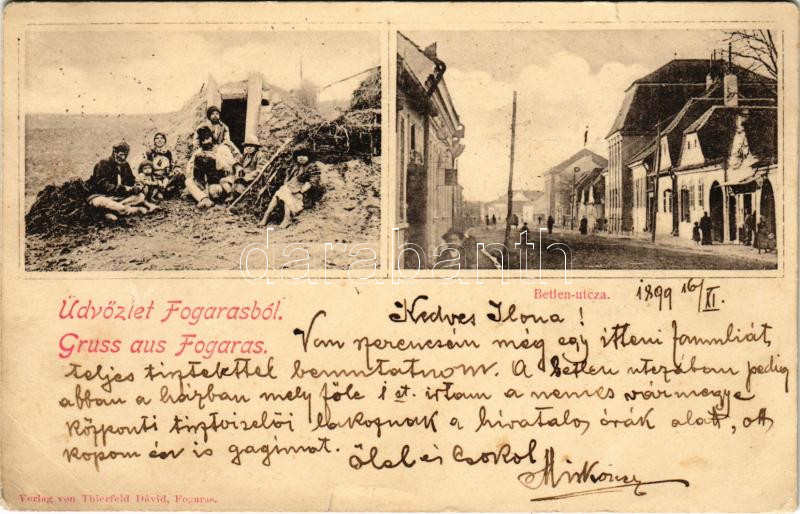 Betlen-utcza.
1899 16/XI.
Üdvőzlet Fogarasból.
Gruss aus Fogaras.
Kedves Ilona!
Van szerencsém még egy itteni familiát,
teljes tisztelettel bemutatnom. A betlen utczában pedig
abban a házban mely fölé 1 et. irtam a nemes vármegye
központi tisztviselői lakoznak a hivatalos órák alatt, ott
kopom én is gagimat. Ölel és Csokol
Verlag von Thierfeld Dávid, Fogaras.
darabanth